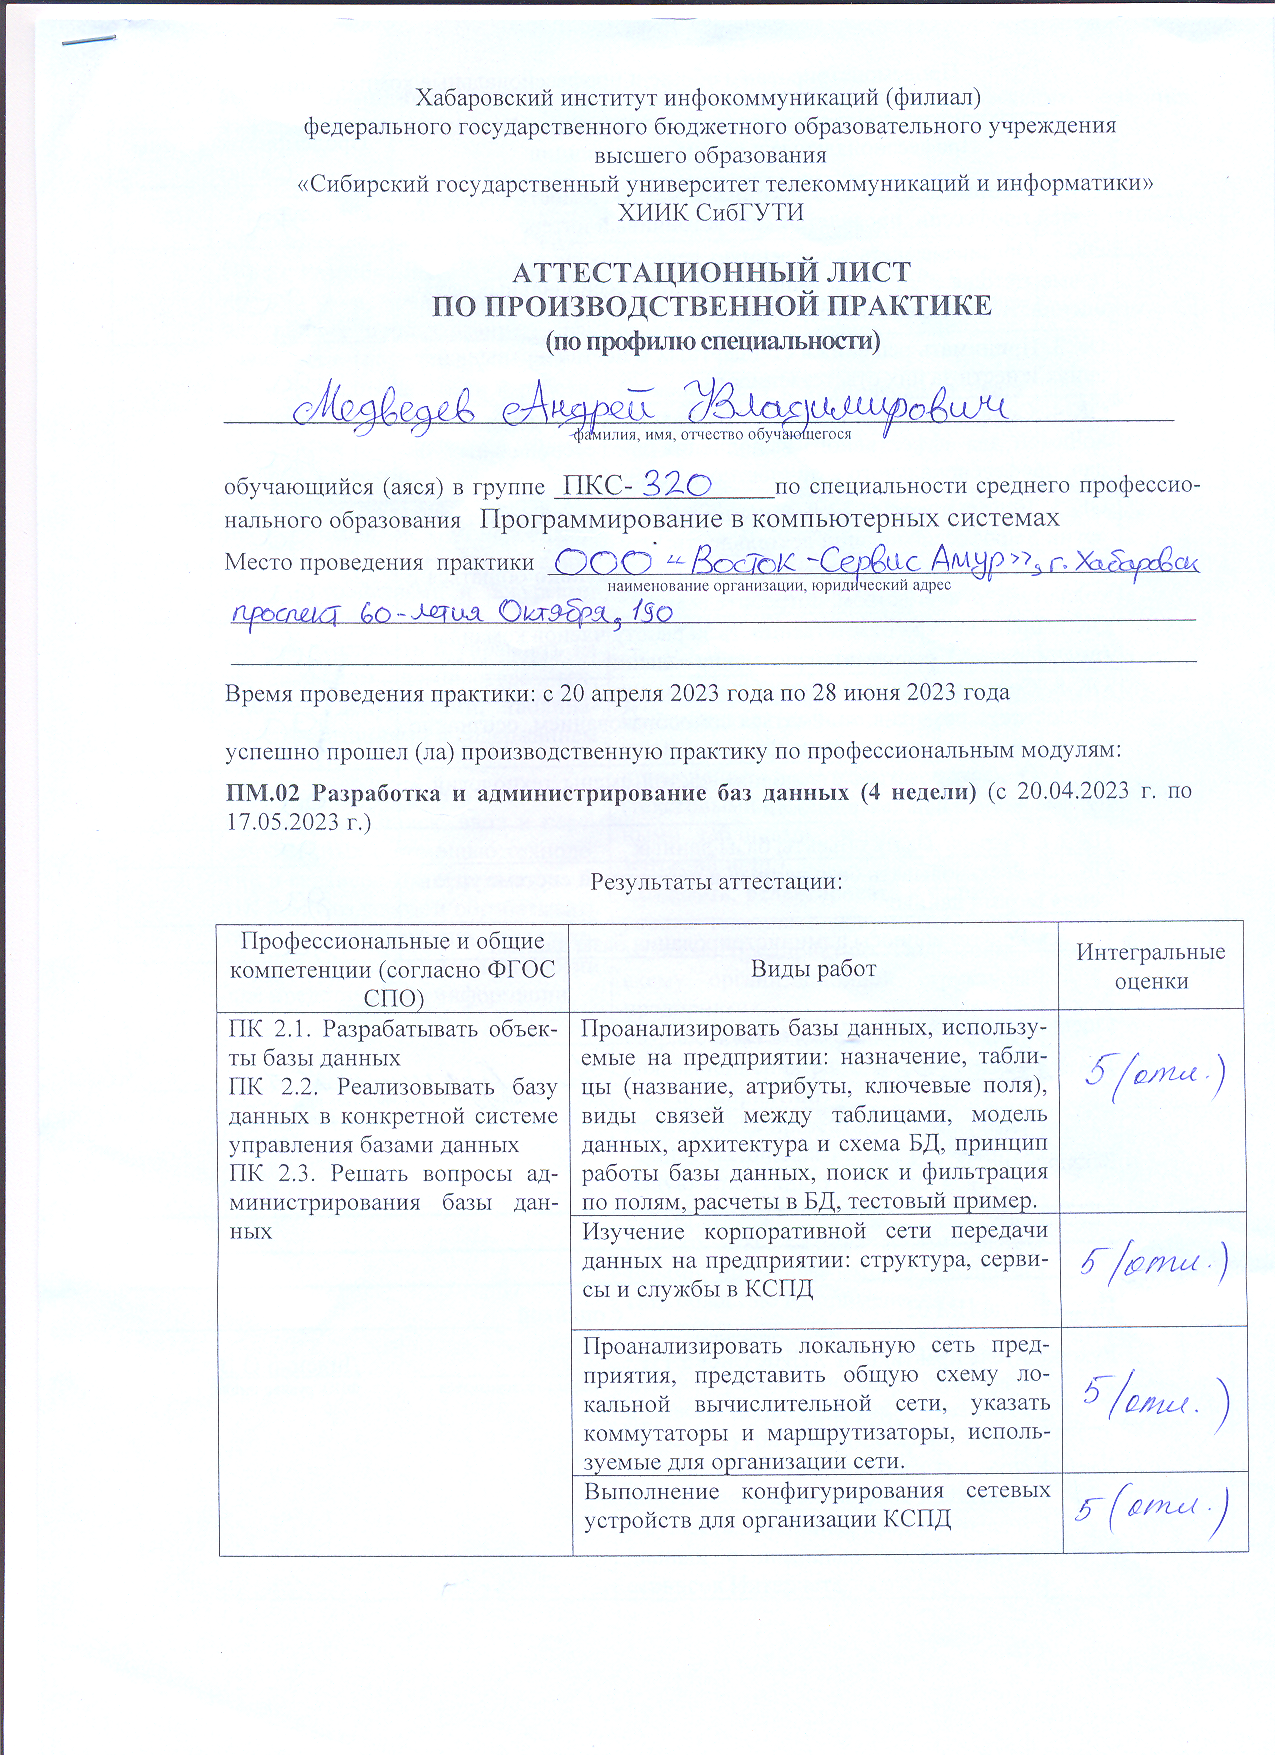 Хабаровский институт инфокоммуникаций (филиал)
федерального государственного бюджетного образовательного учреждения
высшего образования
«Сибирский государственный университет телекоммуникаций и информатики»
ХИИК СибГУТИ
АТТЕСТАЦИОННЫЙ ЛИСТ
ПО ПРОИЗВОДСТВЕННОЙ ПРАКТИКЕ
(по профилю специальности)
Медведев Андрей Владимирович
фамилия, имя, отчество обучающегося
обучающийся (аяся) в группе ПКС- 320 по специальности среднего профессио-
нального образования Программирование в компьютерных системах
Место проведения практики ООО "Восток-Сервис Амур», г. Хабаровск
наименование организации, юридический адрес
проспект 60-летия Октября, 190
Время проведения практики: с 20 апреля 2023 года по 28 июня 2023 года
успешно прошел (ла) производственную практику по профессиональным модулям:
ПМ.02 Разработка и администрирование баз данных (4 недели) (с 20.04.2023 г. по
17.05.2023 г.)
Результаты аттестации:
Профессиональные и общие
компетенции (согласно ФГОС
СПО)
Виды работ
Интегральные
оценки
ПК 2.1. Разрабатывать объек-
ты базы данных
ПК 2.2. Реализовывать базу
данных в конкретной системе
управления базами данных
ПК 2.3. Решать вопросы ад-
министрирования базы дан-
ных
Проанализировать базы данных, использу-
емые на предприятии: назначение, табли-
цы (название, атрибуты, ключевые поля),
виды связей между таблицами, модель
данных, архитектура и схема БД, принцип
работы базы данных, поиск и фильтрация
по полям, расчеты в БД, тестовый пример.
5 (отл.)
Изучение корпоративной сети передачи
данных на предприятии: структура, серви-
сы и службы в КСПД
5 (отл.)
Проанализировать локальную сеть пред-
приятия, представить общую схему ло-
кальной вычислительной сети, указать
коммутаторы и маршрутизаторы, исполь-
зуемые для организации сети.
5 (отл.)
Выполнение конфигурирования сетевых
устройств для организации КСПД
5 (отл.)